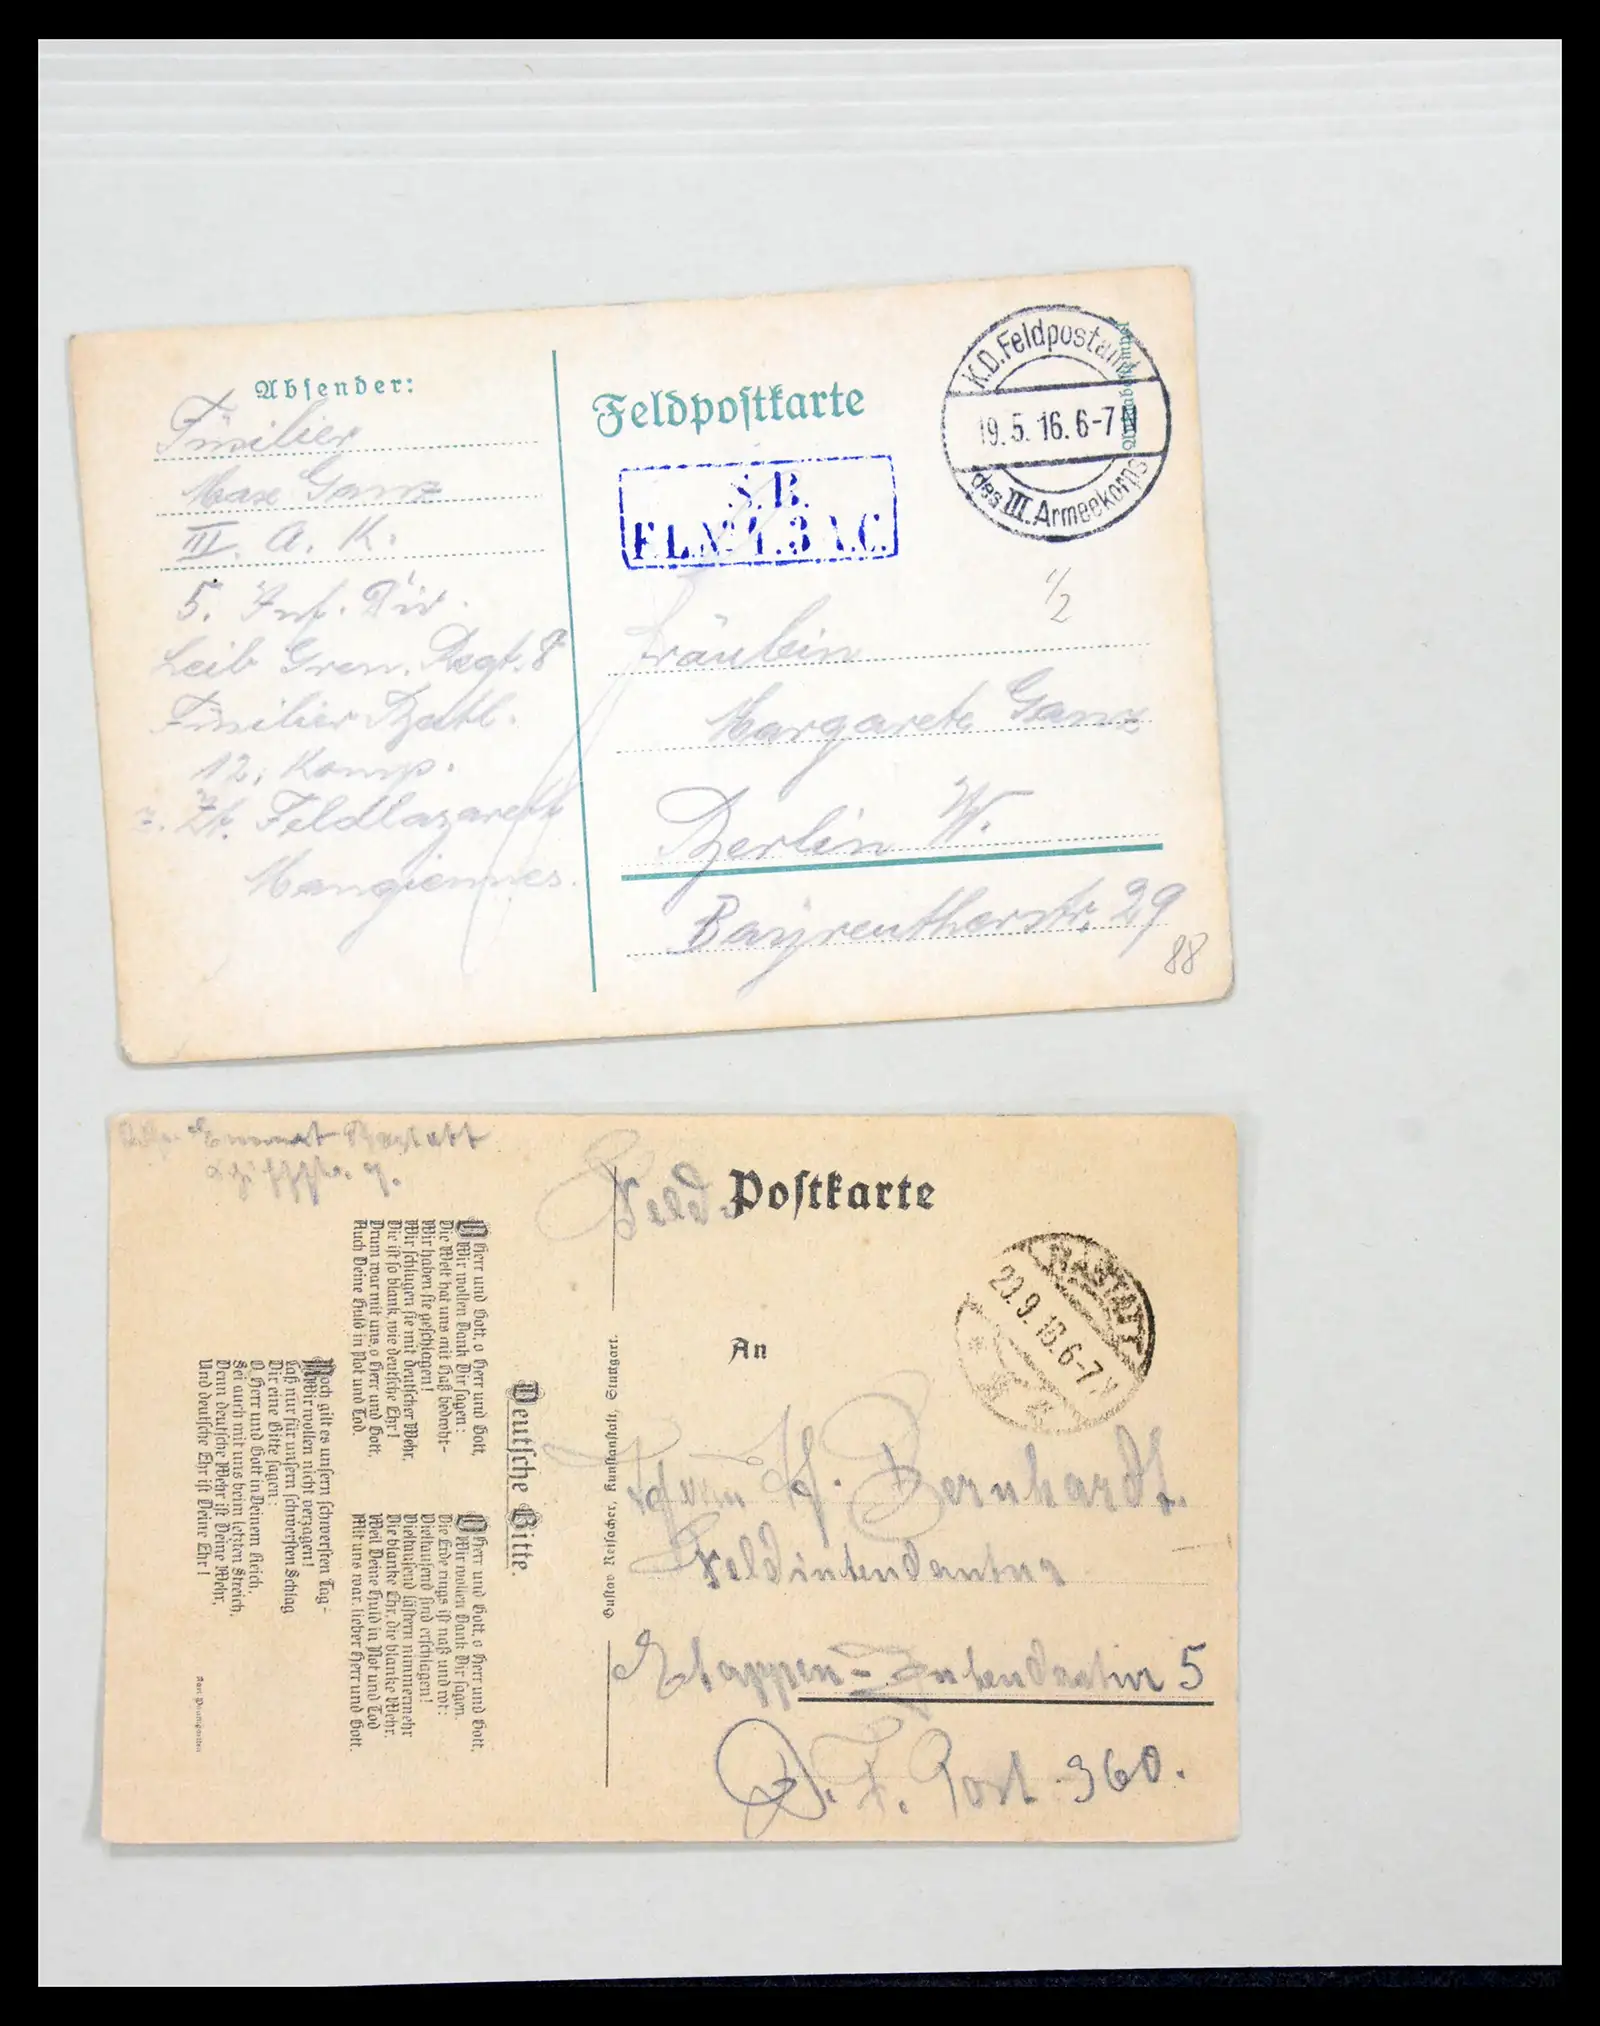 Absender:
Füsilier
Max Ganz
III. A. K.
5. Inf. Div.
Leib Gren. Regt. 8
Füsilier Batl.
12. Komp.
z. Zt. Feldlazarett
Mangiennes.
Feldpostkarte
K.D. Feldpostamt
19.5.16. 6-7 N
des III. Armeekorps
S. B.
1/2
Fräulein
Margarete Ganz
Berlin W.
Bayreutherstr. 29
88
Rastatt
Feld-Postkarte
RASTATT
An
Herrn H. Bernhardt.
Feldintendantur
Etappen-Intendantur 5
D. F. Post 360.
Gustav Reisacher, Kunstanstalt, Stuttgart.
Deutsche Bitte.
O Herr und Gott, o Herr und Gott,
Wir wollen Dank Dir sagen:
Die Welt hat uns mit Haß bedroht-
Wir haben sie geschlagen!
Wir schlugen sie mit deutscher Wehr,
Die ist so blank, wie deutsche Ehr!
Drum war mit uns, o Herr und Gott,
Auch Deine Huld in Not und Tod.
O Herr und Gott, o Herr und Gott,
Wir wollen Dank Dir sagen.
Die Erde rings ist naß und rot:
Vieltausend sind erschlagen!
Vieltausend lästern nimmermehr
Die blanke Ehr, die blanke Wehr,
Weil Deine Huld in Not und Tod
Mit uns war, lieber Herr und Gott.
Noch gilt es unsern schwersten Tag-
Wir wollen nicht verzagen!
Laß nur für unsern schwersten Schlag
Dir eine Bitte sagen:
O, Herr und Gott in Deinem Reich,
Sei auch mit uns beim letzten Streich,
Denn deutsche Wehr ist Deine Wehr,
Und deutsche Ehr ist Deine Ehr!